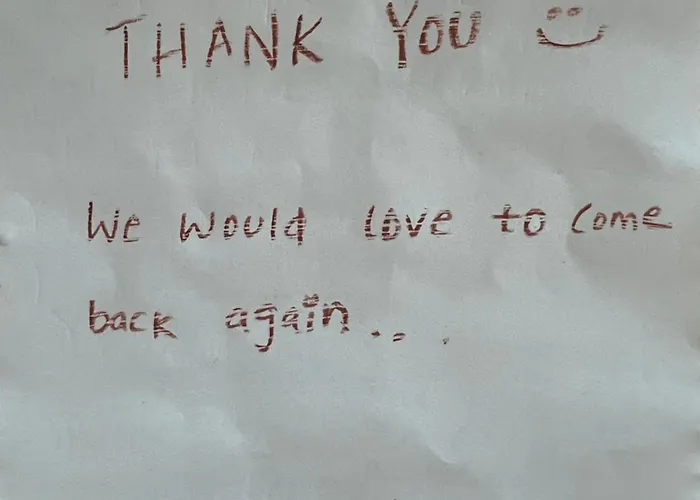 THANK YOU
We would love to come
back again...